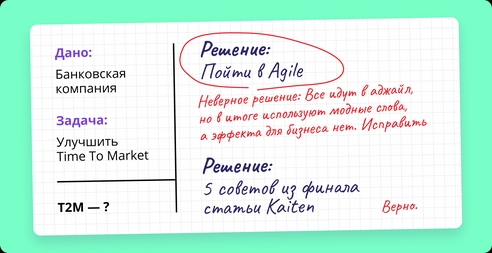 Дано:
Банковская
компания
Задача:
Улучшить
Time To Market
T2M — ?
Решение:
Пойти в Agile
Неверное решение: Все идут в аджайл,
но в итоге используют модные слова,
а эффекта для бизнеса нет. Исправить
Решение:
5 советов из финала
статьи Kaiten
Верно.